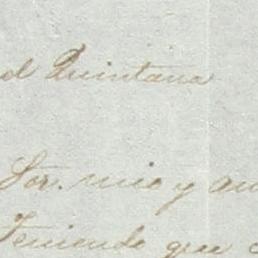 el Quintana
Sor. mio y am
Teniendo que